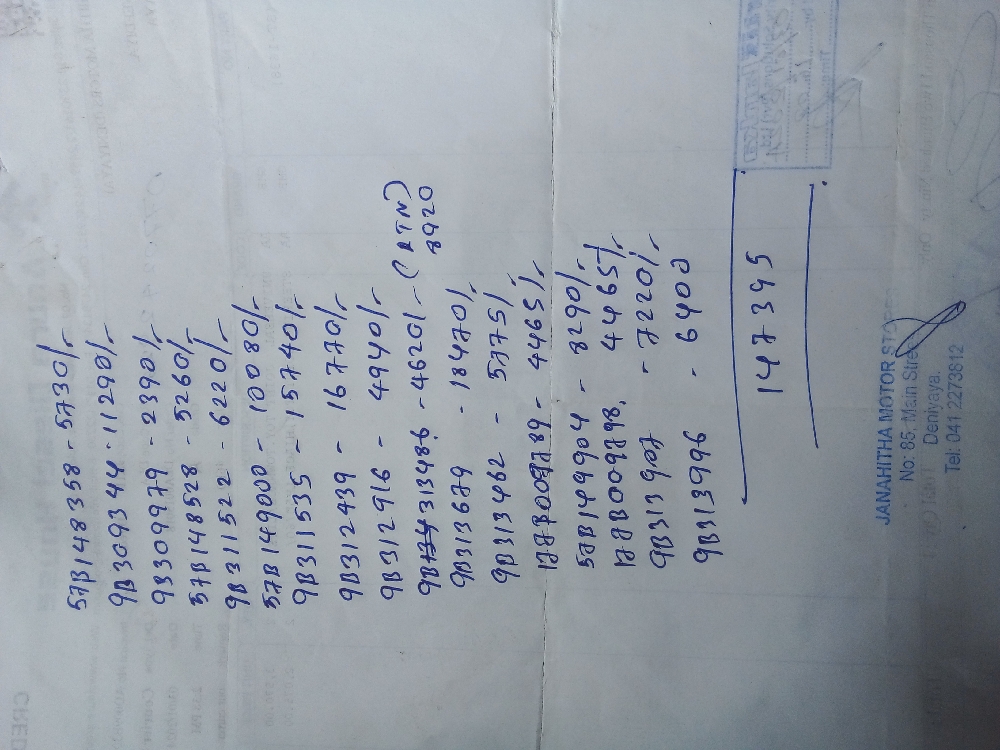 57B148358 - 5730/-
9B309344 - 11290/-
9B309979 - 2390/-
57B148528 - 5260/-
9B311522 - 6220/-
57B149000 - 10080/-
9B311535 - 15740/-
9B312439 - 16770/-
9B312916 - 4940/-
9B313486 - 4620/- (RTN)
8920
9B313679 - 18470/-
9B313462 - 5775/-
177B009789 - 4465/-
57B149904 - 8290/-
177B009798. 4465/-
9B313907 - 7220/-
9B313996 - 6400
147395
JANAHITHA MOTOR STO
No: 85, Main Stree
Deniyaya.
Tel: 041 2273612